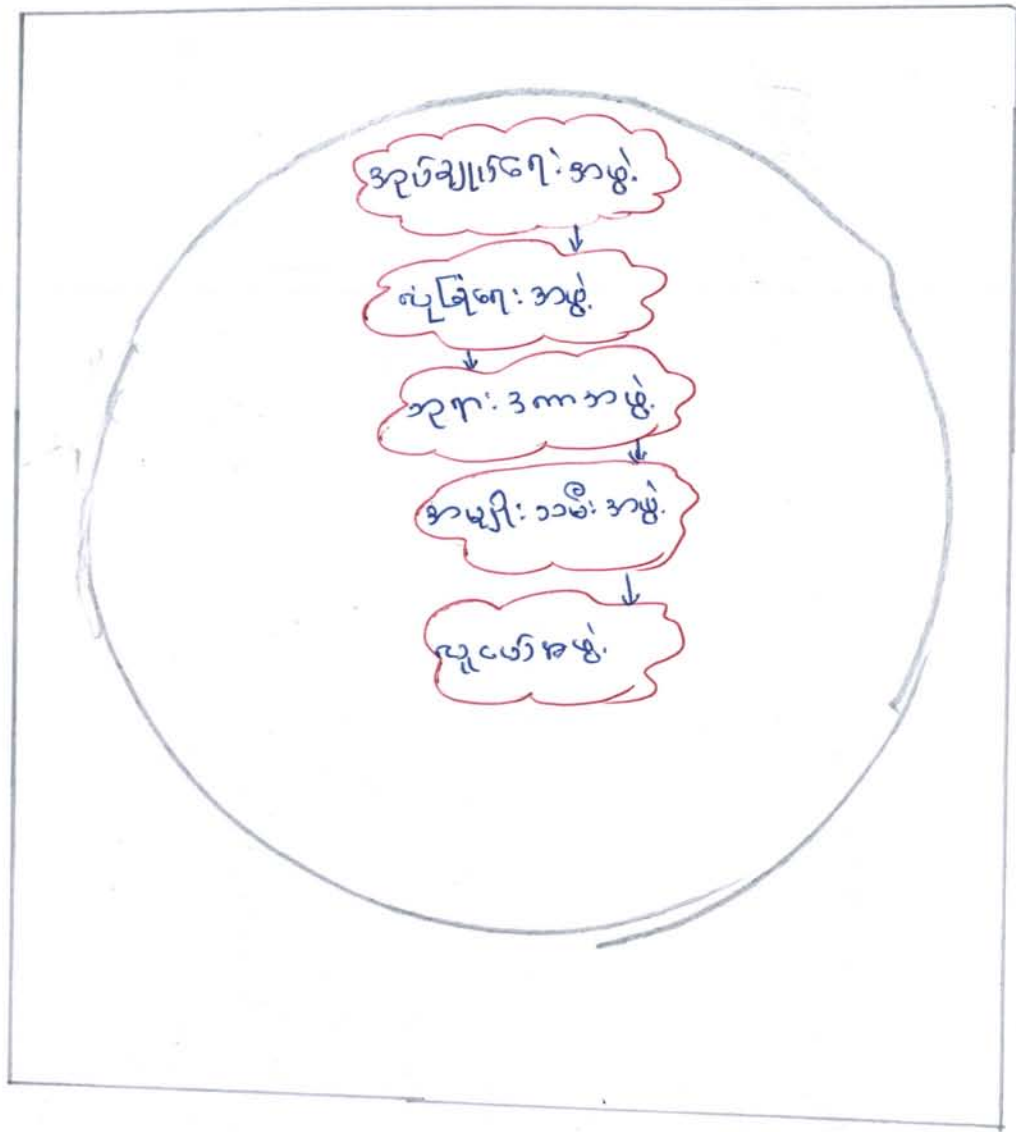 အုပ်ချုပ်ရေးအဖွဲ့
လုံခြုံရေးအဖွဲ့
ဘုရားဒကာအဖွဲ့
အမျိုးသမီးအဖွဲ့
လူငယ်အဖွဲ့